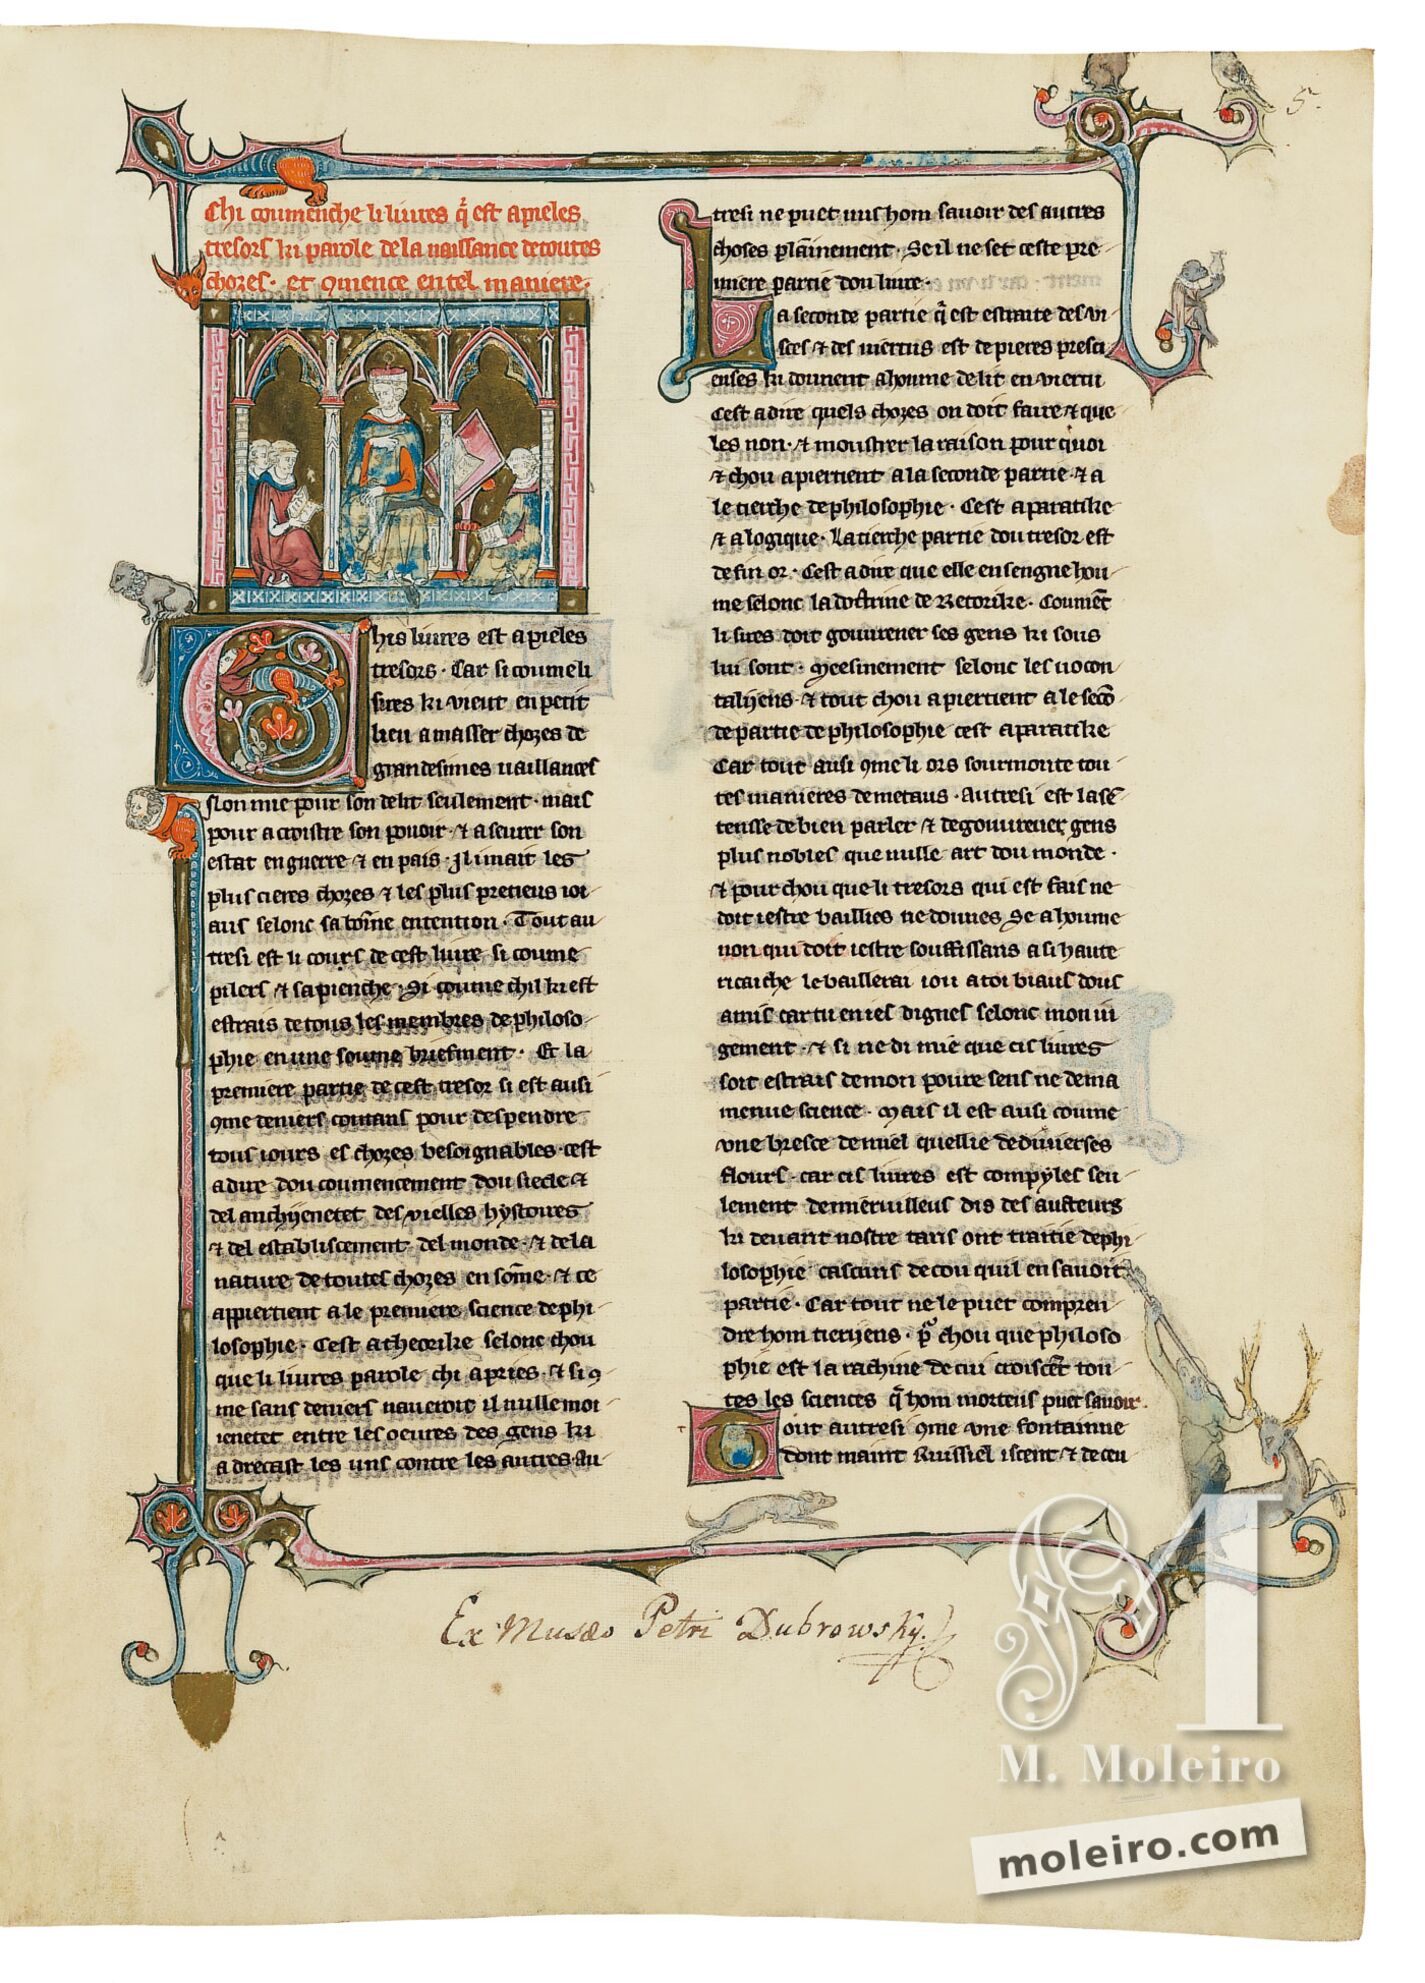 5.
Chi coumenche li liures q̄ est apieles
tresors ki parole de la naissance de toutes
chozes · et ꝯmence en tel maniere ·
Chis liures est apieles
tresors · Car si coume li
sires ki vieut en petit
lieu amasser chozes de
grandesmes uaillances
Non mie pour son delit seulement · mais
pour acroistre son pouoir · ⁊ aseurer son
estat en guerre ⁊ en pais · Il i mait les
plus cieres chozes ⁊ les plus pretieus ioi
aus selonc sa boīne entention · Tout au
tresi est li cours de cest liure si coume
pilers ⁊ sapienche · Si coume chil ki est
estrais de tous les membres de philoso
phie en une soume briefment · Et la
premiere partie de cest tresor si est ausi
ꝯme deniers contans pour despendre
tous iours es chozes besoignables · cest
a dire dou coumencement dou siecle ⁊
del anchijenetet des vielles hystoires
⁊ del establiscement del monde · ⁊ de la
nature de toutes chozes en som̄e · ⁊ ce
appiertient a le premiere science de phi
losophie · Cest a theorike selonc chou
que li liures parole chi apries · ⁊ si ꝯ
me sans deniers naueroit il nulle moi
ienetet entre les oeures des gens ki
adrecast les uns contre les autres · Au
tresi ne puet nus hom sauoir des autres
choses plainement · Se il ne set ceste pre
miere partie dou liure ·
La seconde partie q̄ est estraite des vi
sces ⁊ des uiertus est de pieres presci
euses ki donnent a houme delit en viertu
Cest a dire quels chozes on doit faire ⁊ que
les non · ⁊ moustrer la raison pour quoi
⁊ chou apiertient a la seconde partie · ⁊ a
le tierche de philosophie · Cest a paratike
⁊ a logique · La tierche partie dou tresor est
de fin or · Cest a dire que elle ensengne hou
me selonc la doctrine de Retorike · Coument
li sires doit gouurener ses gens ki sous
lui sont · Meesmement selonc les us
talijens · ⁊ tout chou apiertient a le seco
de partie de philosophie cest a paratike
Car tout ausi ꝯme li ors sourmonte tou
tes manieres de metaus · Autresi est la sē
tensse de bien parler ⁊ de gouurener gens
plus nobles que nulle art dou monde ·
⁊ pour chou que li tresors qui est fais ne
doit iestre baillies ne dounes Se a houme
non qui doit iestre souffissans a si haute
ricaiche le baillerai iou a toi biaus dous
amis car tu en ies dignes selonc mon iu
gement · ⁊ si ne di mie que cis liures
soit estrais de mon poure sens ne de ma
menue science · Mais il est ausi coume
vne bresce de miel quellie de diuierses
flours · car cis liures est compyles seu
lement de meruilleus dis des aucteurs
ki deuant nostre tans ont traitie de phi
losophie cascuns de cou quil en sauoit
partie · Car tout ne le puet compren
dre hom tierijens · p̄ chou que philoso
phie est la rachine de cui croiscēt tou
tes les sciences q̄ hom mortens puet sauoir ·
Tout autresi ꝯme vne fontainne
dont maint Ruissiel iscent ⁊ de ceu
Ex Musæo Petri Dubrowsky.
M
M. Moleiro
moleiro.com